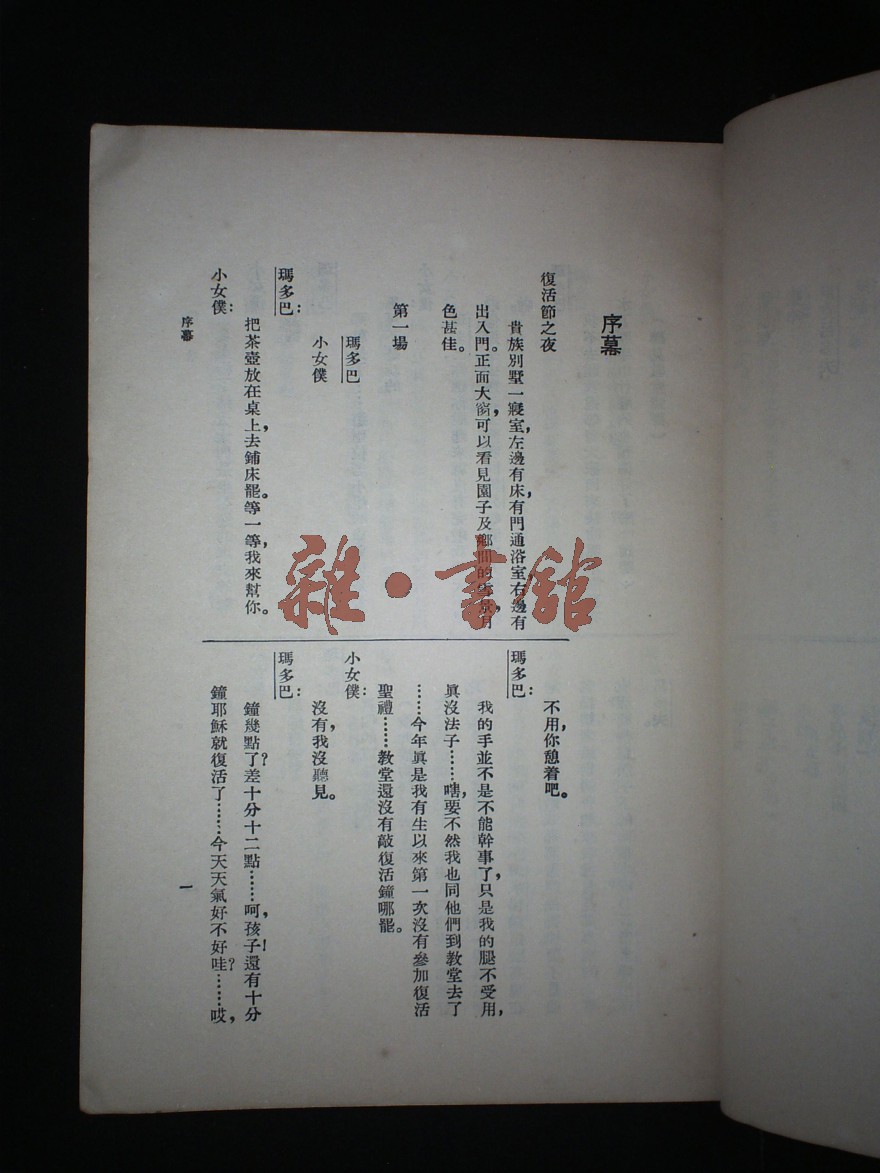 序幕
復活節之夜
貴族別墅一寢室，左邊有床有門通浴室右邊有
出入門。正面大窗，可以看見園子及鄉間的雪景，月
色甚佳。
第一場
瑪多巴
小女僕
瑪多巴：
把茶壺放在桌上，去鋪床罷。等一等，我來幫你。
小女僕：
不用，你憩着吧。
瑪多巴：
我的手並不是不能幹事了，只是我的腿不受用，
眞沒法子……嘻，要不然我也同他們到教堂去了
……今年眞是我有生以來第一次沒有參加復活
聖禮……教堂還沒有敲復活鐘哪罷。
小女僕：
沒有，我沒聽見。
瑪多巴：
鐘幾點了？差十分十二點……呵，孩子！還有十分
鐘耶穌就復活了……今天天氣好不好哇？……哎，
序幕
一
雜·書館